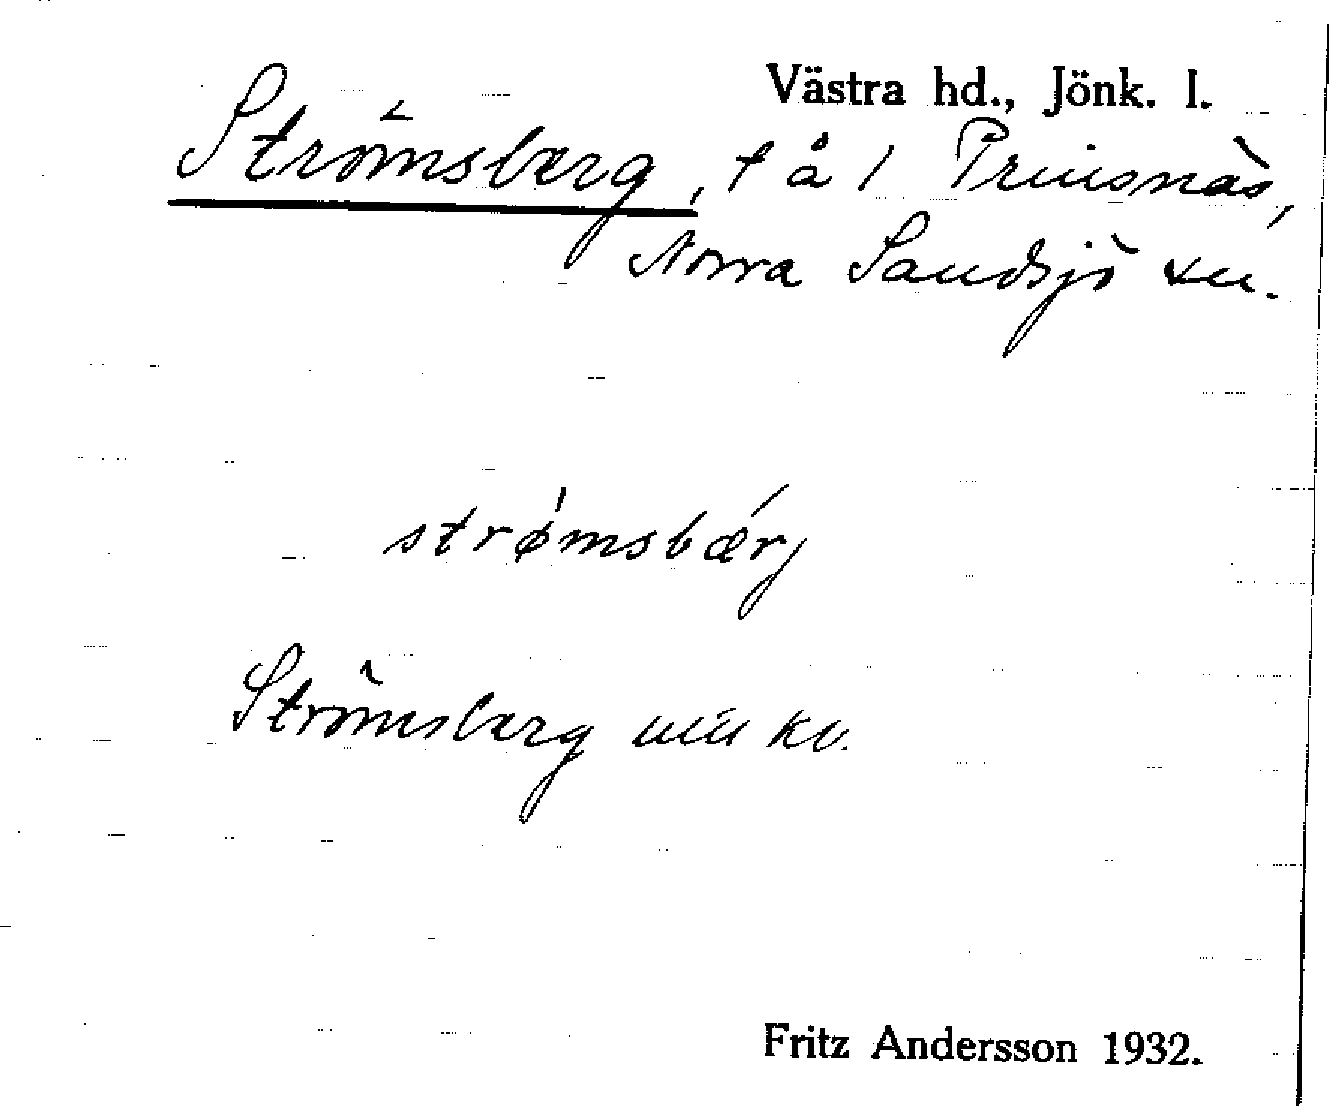 Västra hd., Jönk. l.
Strömsberg, t å l Prinsnäs,
Norra Sandsjö sn.
strǿmsbǽrj
Strömsberg min kv.
Fritz Andersson 1932.